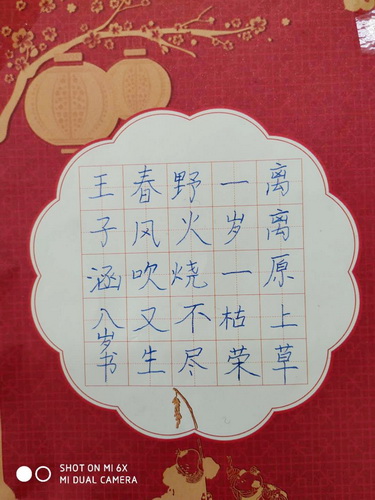 离离原上草
一岁一枯荣
野火烧不尽
春风吹又生
王子涵八岁书
SHOT ON MI 6X
MI DUAL CAMERA